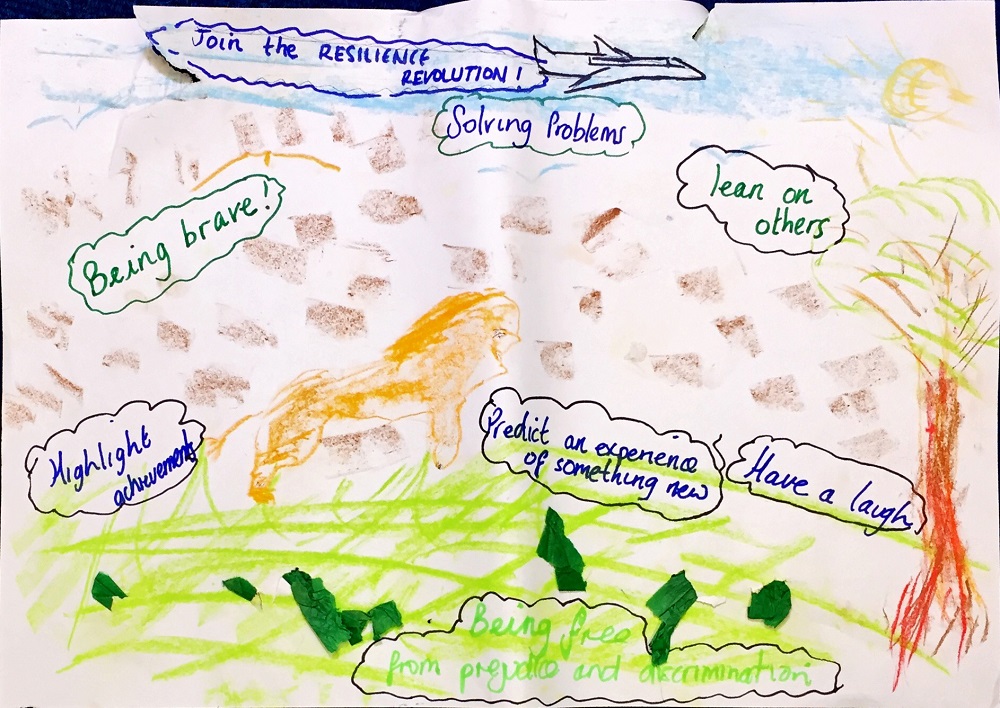 Join the RESILIENCE
REVOLUTION!
Solving Problems
lean on
others
Being brave!
Highlight
achievements
Predict an experience
of something new
Have a laugh
Being free
from prejudice and discrimination